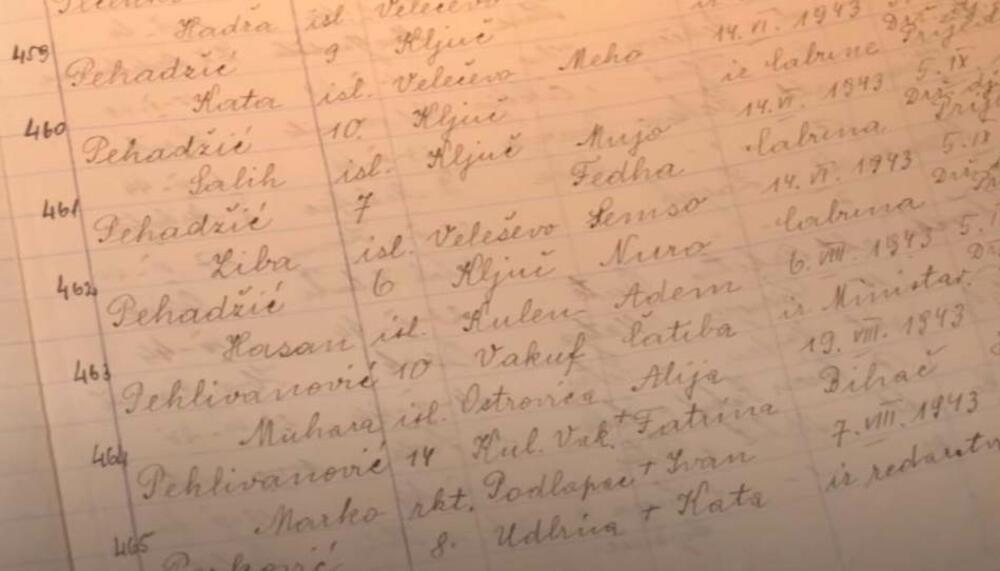 Hadža isl. Velečevo
459 Pehadžić 9 Ključ 14. VI. 1943
Kata isl. Velečevo Meho iz Cabrine
460 Pehadžić 10. Ključ 14. VI. 1943 5. IX
Salih isl. Ključ Mujo Cabrina
461 Pehadžić 7 Fedha 14. VI. 1943 5. IX
Ziba isl. Veleševo Semso Cabrina
462 Pehadžić 6 Ključ Nuro 6. VIII. 1943
Hasan isl. Kulen Adem iz Ministar.
463 Pehlivanović 10 Vakuf Čatiba 19. VIII. 1943
Muhara isl. Ostrovica Alija Bihać
464 Pehlivanović 14 Kul. Vak. + Fatrina 7. VIII. 1943
Marko rkt. Podlapac + Ivan iz redarstv
465 8. Udbina + Kata